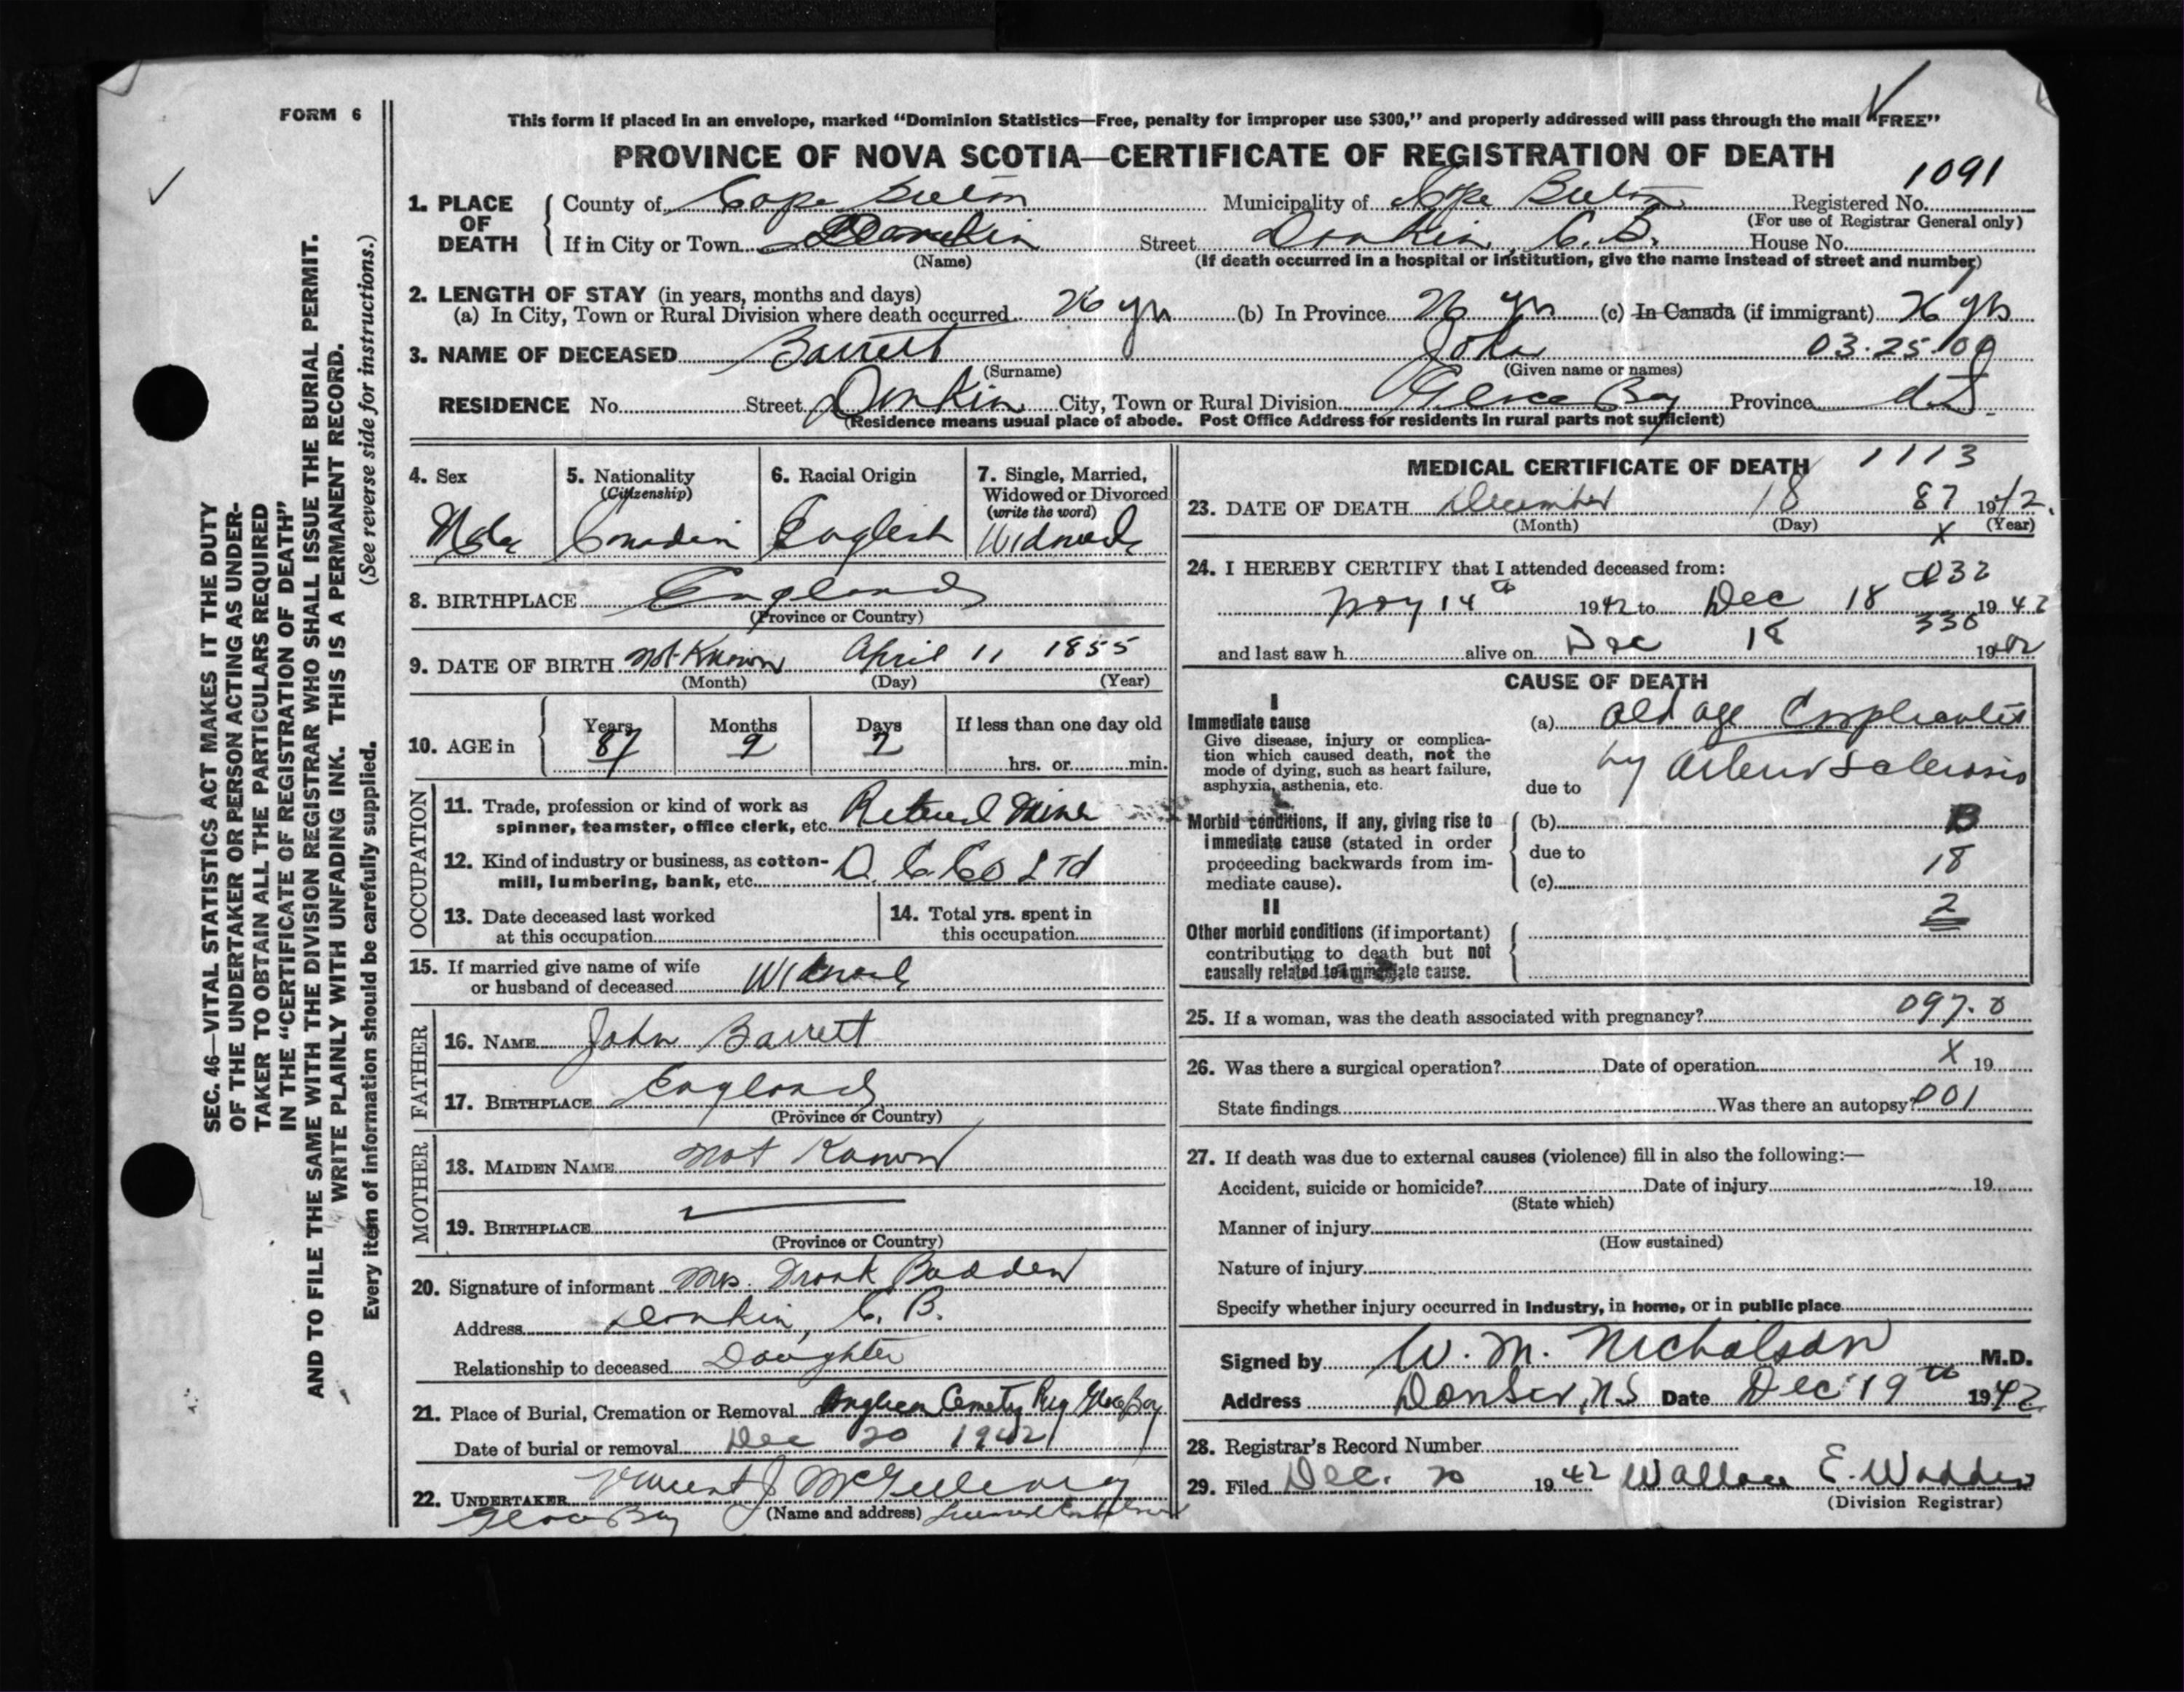 FORM 6
This form if placed in an envelope, marked “Dominion Statistics—Free, penalty for improper use $300,” and properly addressed will pass through the mail “FREE”
PROVINCE OF NOVA SCOTIA—CERTIFICATE OF REGISTRATION OF DEATH
1091
1. PLACE OF DEATH
County of Cape Breton Municipality of Cape Breton Registered No.
(For use of Registrar General only)
If in City or Town Donkin Street Donkin, C.B. House No.
(Name) (If death occurred in a hospital or institution, give the name instead of street and number)
2. LENGTH OF STAY (in years, months and days)
(a) In City, Town or Rural Division where death occurred 26 yrs (b) In Province 26 yrs (c) In Canada (if immigrant) 26 yrs
3. NAME OF DECEASED Barrett John 03.25.09
(Surname) (Given name or names)
RESIDENCE No. Street Donkin City, Town or Rural Division Glace Bay Province N.S.
(Residence means usual place of abode. Post Office Address for residents in rural parts not sufficient)
4. Sex 5. Nationality (Citizenship) 6. Racial Origin 7. Single, Married, Widowed or Divorced (write the word)
Male Canadian English Widowed
8. BIRTHPLACE England
(Province or Country)
9. DATE OF BIRTH Not Known April 11 1855
(Month) (Day) (Year)
10. AGE in Years Months Days If less than one day old
87 9 7 hrs. or min.
OCCUPATION
11. Trade, profession or kind of work as spinner, teamster, office clerk, etc. Retired Miner
12. Kind of industry or business, as cotton-mill, lumbering, bank, etc. D. C. Co Ltd
13. Date deceased last worked at this occupation
14. Total yrs. spent in this occupation
15. If married give name of wife or husband of deceased Widowed
FATHER
16. NAME John Barrett
17. BIRTHPLACE England
(Province or Country)
MOTHER
18. MAIDEN NAME Not Known
19. BIRTHPLACE
(Province or Country)
20. Signature of informant Mrs. Frank Budden
Address Donkin, C. B.
Relationship to deceased Daughter
21. Place of Burial, Cremation or Removal Anglican Cemetry Glace Bay
Date of burial or removal Dec 20 1942
22. UNDERTAKER Vincent J McGillivray
Glace Bay (Name and address)
MEDICAL CERTIFICATE OF DEATH 1113
23. DATE OF DEATH December 18 87 1942.
(Month) (Day) X (Year)
24. I HEREBY CERTIFY that I attended deceased from:
032
Nov 14th 1942 to Dec 18 1942
336
and last saw h alive on Dec 18 1942
CAUSE OF DEATH
I
Immediate cause (a) Old age
Give disease, injury or complication which caused death, not the mode of dying, such as heart failure, asphyxia, asthenia, etc.
due to by Arterio Sclerosis
Morbid conditions, if any, giving rise to immediate cause (stated in order proceeding backwards from immediate cause).
(b) B
due to
18
(c)
II
2
Other morbid conditions (if important) contributing to death but not causally related to immediate cause.
25. If a woman, was the death associated with pregnancy? 097.0
26. Was there a surgical operation? Date of operation X 19
State findings Was there an autopsy? 001
27. If death was due to external causes (violence) fill in also the following:—
Accident, suicide or homicide? Date of injury 19
(State which)
Manner of injury
(How sustained)
Nature of injury
Specify whether injury occurred in industry, in home, or in public place
Signed by W. M. Nicholson M.D.
Address N.S Date Dec 19th 1942
28. Registrar's Record Number
29. Filed Dec. 20 1942 Wallace E. Wadden
(Division Registrar)
SEC. 46—VITAL STATISTICS ACT MAKES IT THE DUTY
OF THE UNDERTAKER OR PERSON ACTING AS UNDER-
TAKER TO OBTAIN ALL THE PARTICULARS REQUIRED
IN THE “CERTIFICATE OF REGISTRATION OF DEATH”
AND TO FILE THE SAME WITH THE DIVISION REGISTRAR WHO SHALL ISSUE THE BURIAL PERMIT.
WRITE PLAINLY WITH UNFADING INK. THIS IS A PERMANENT RECORD.
Every item of information should be carefully supplied. (See reverse side for instructions.)